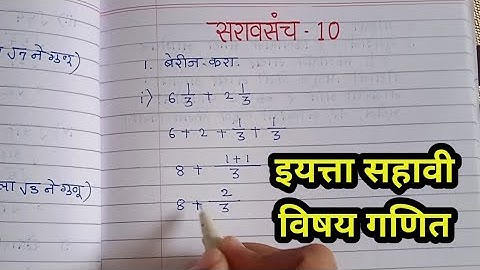 सरावसंच - 10
1. बेरीज करा.
i) 6 1/3 + 2 1/3
6 + 2 + 1/3 + 1/3
8 + (1+1)/3
8 + 2/3
√7 ने गुणू)
ला √3 ने गुणू)
इयत्ता सहावी
विषय गणित